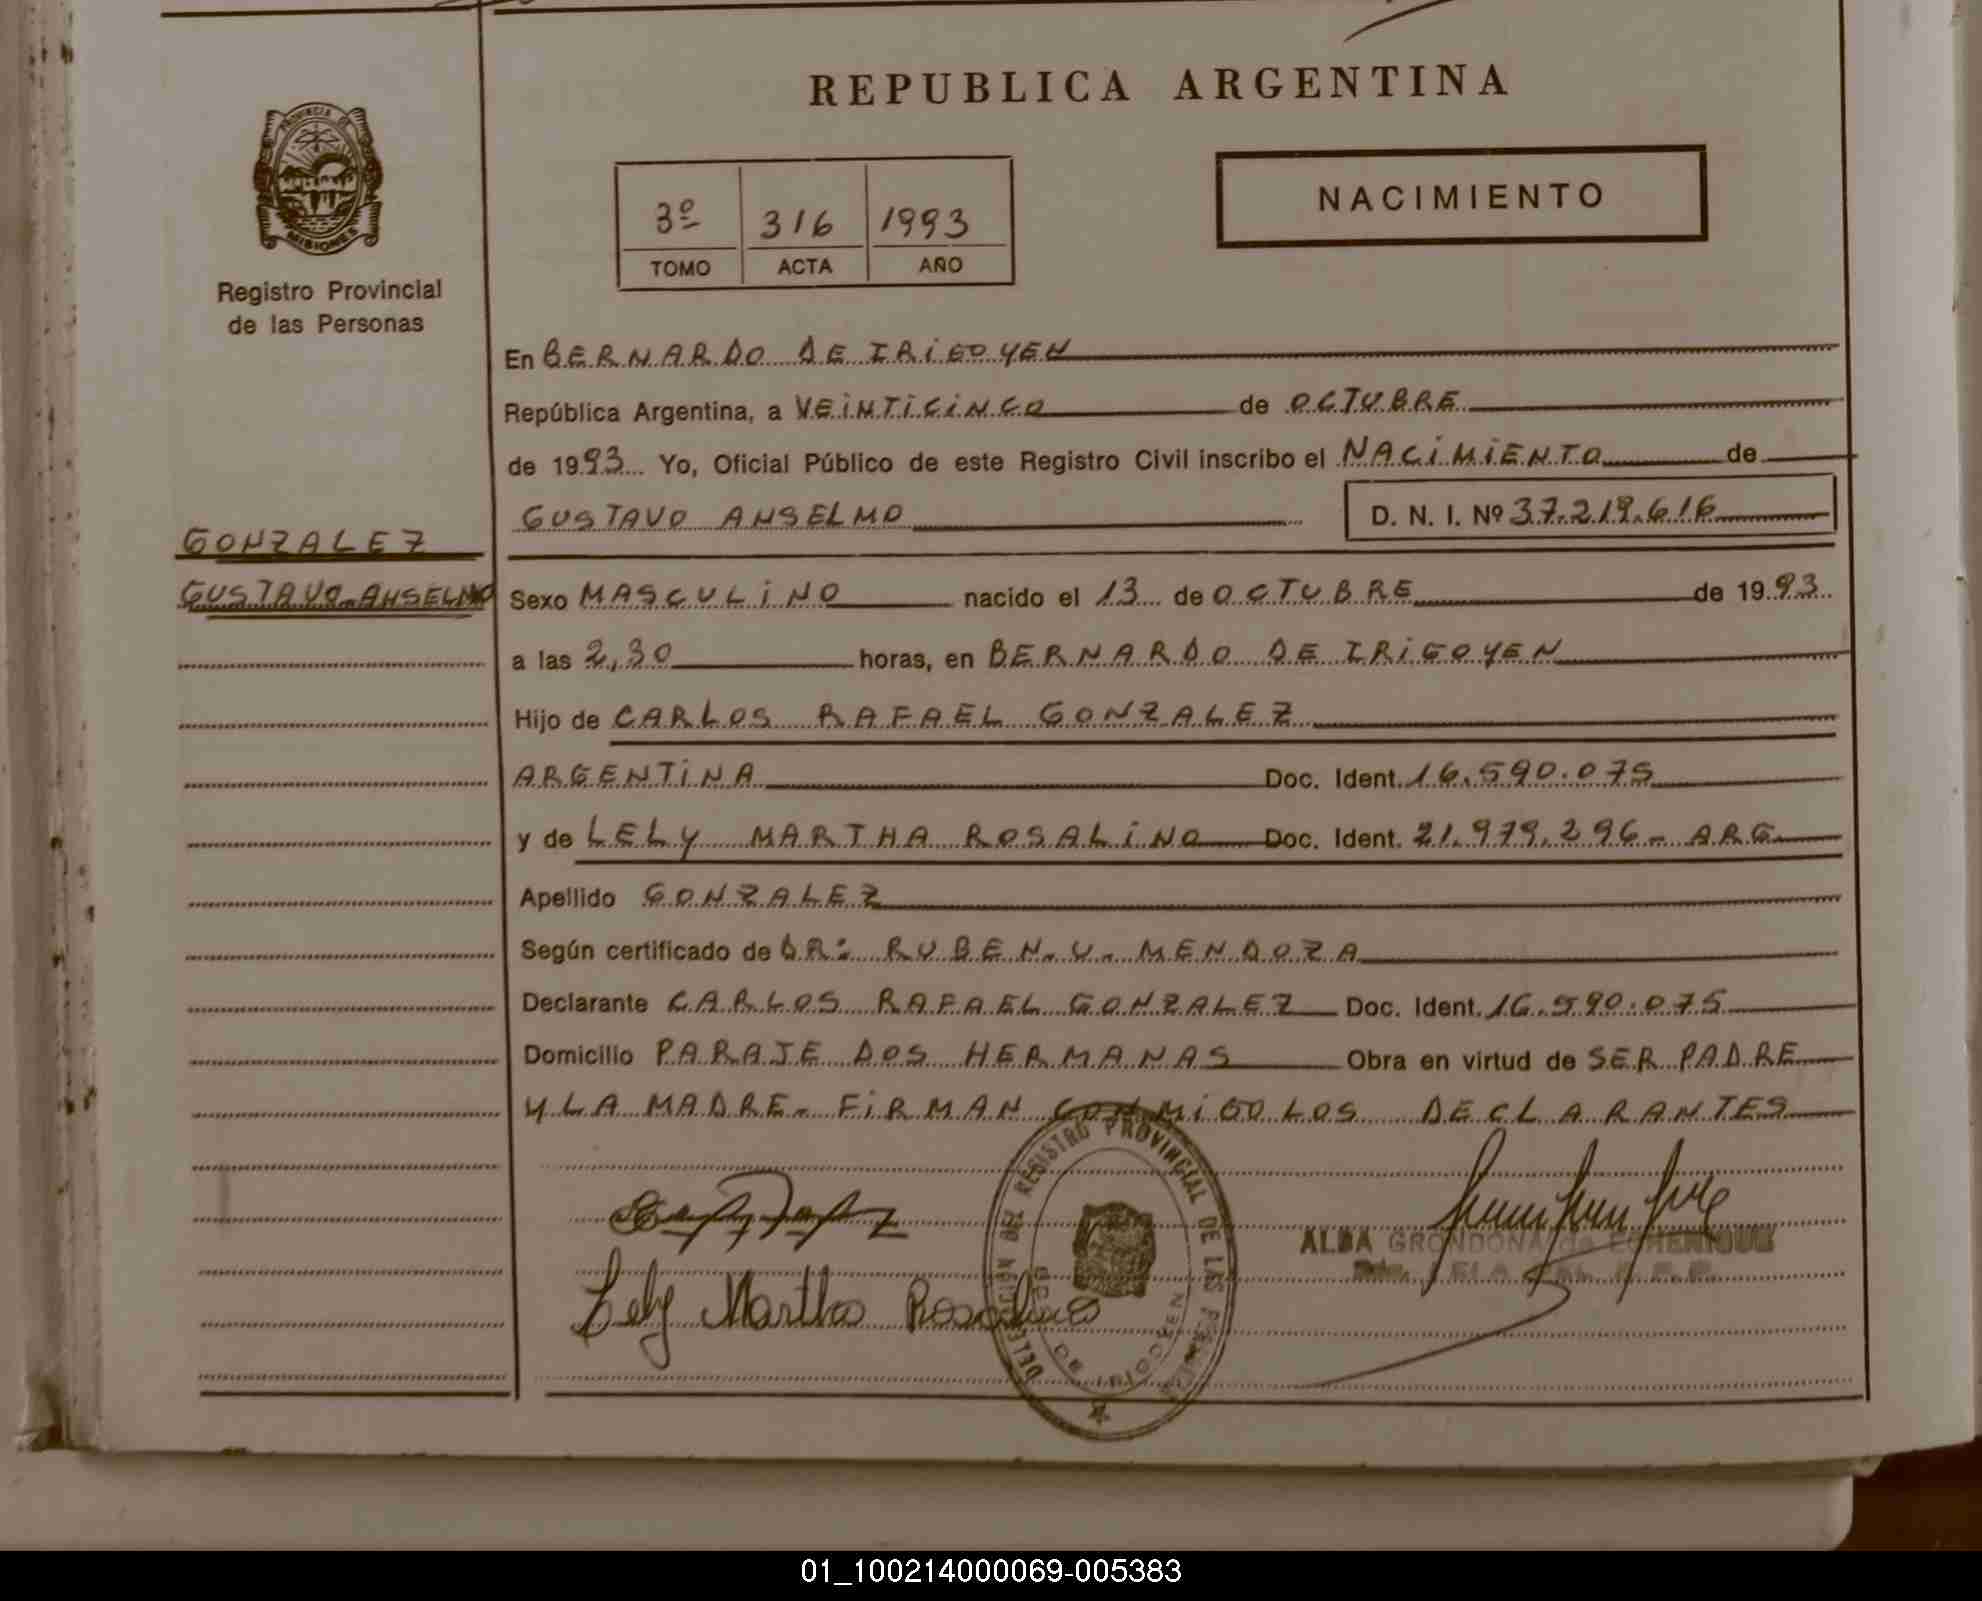 REPUBLICA ARGENTINA
PROVINCIA DE
MISIONES
Registro Provincial
de las Personas
3º 316 1993
TOMO ACTA AÑO
NACIMIENTO
En BERNARDO DE IRIGOYEN
República Argentina, a VEINTICINCO de OCTUBRE
de 1993 Yo, Oficial Público de este Registro Civil inscribo el NACIMIENTO de
GUSTAVO ANSELMO D. N. I. Nº 37.219.616
GONZALEZ
GUSTAVO ANSELMO
Sexo MASCULINO nacido el 13 de OCTUBRE de 1993
a las 2,30 horas, en BERNARDO DE IRIGOYEN
Hijo de CARLOS RAFAEL GONZALEZ
ARGENTINA Doc. Ident. 16.590.075
y de LELY MARTHA ROSALINO Doc. Ident. 21.979.296- ARG.
Apellido GONZALEZ
Según certificado de DR: RUBEN. U. MENDOZA
Declarante CARLOS RAFAEL GONZALEZ Doc. Ident. 16.590.075
Domicilio PARAJE DOS HERMANAS Obra en virtud de SER PADRE
Y LA MADRE. FIRMAN CONMIGO LOS DECLARANTES
DELEGACIÓN DEL REGISTRO PROVINCIAL DE LAS PERSONAS
BDO. DE IRIGOYEN
ALBA GRONDONA de ECHENIQUE
Lely Martha Rosalino
01_100214000069-005383